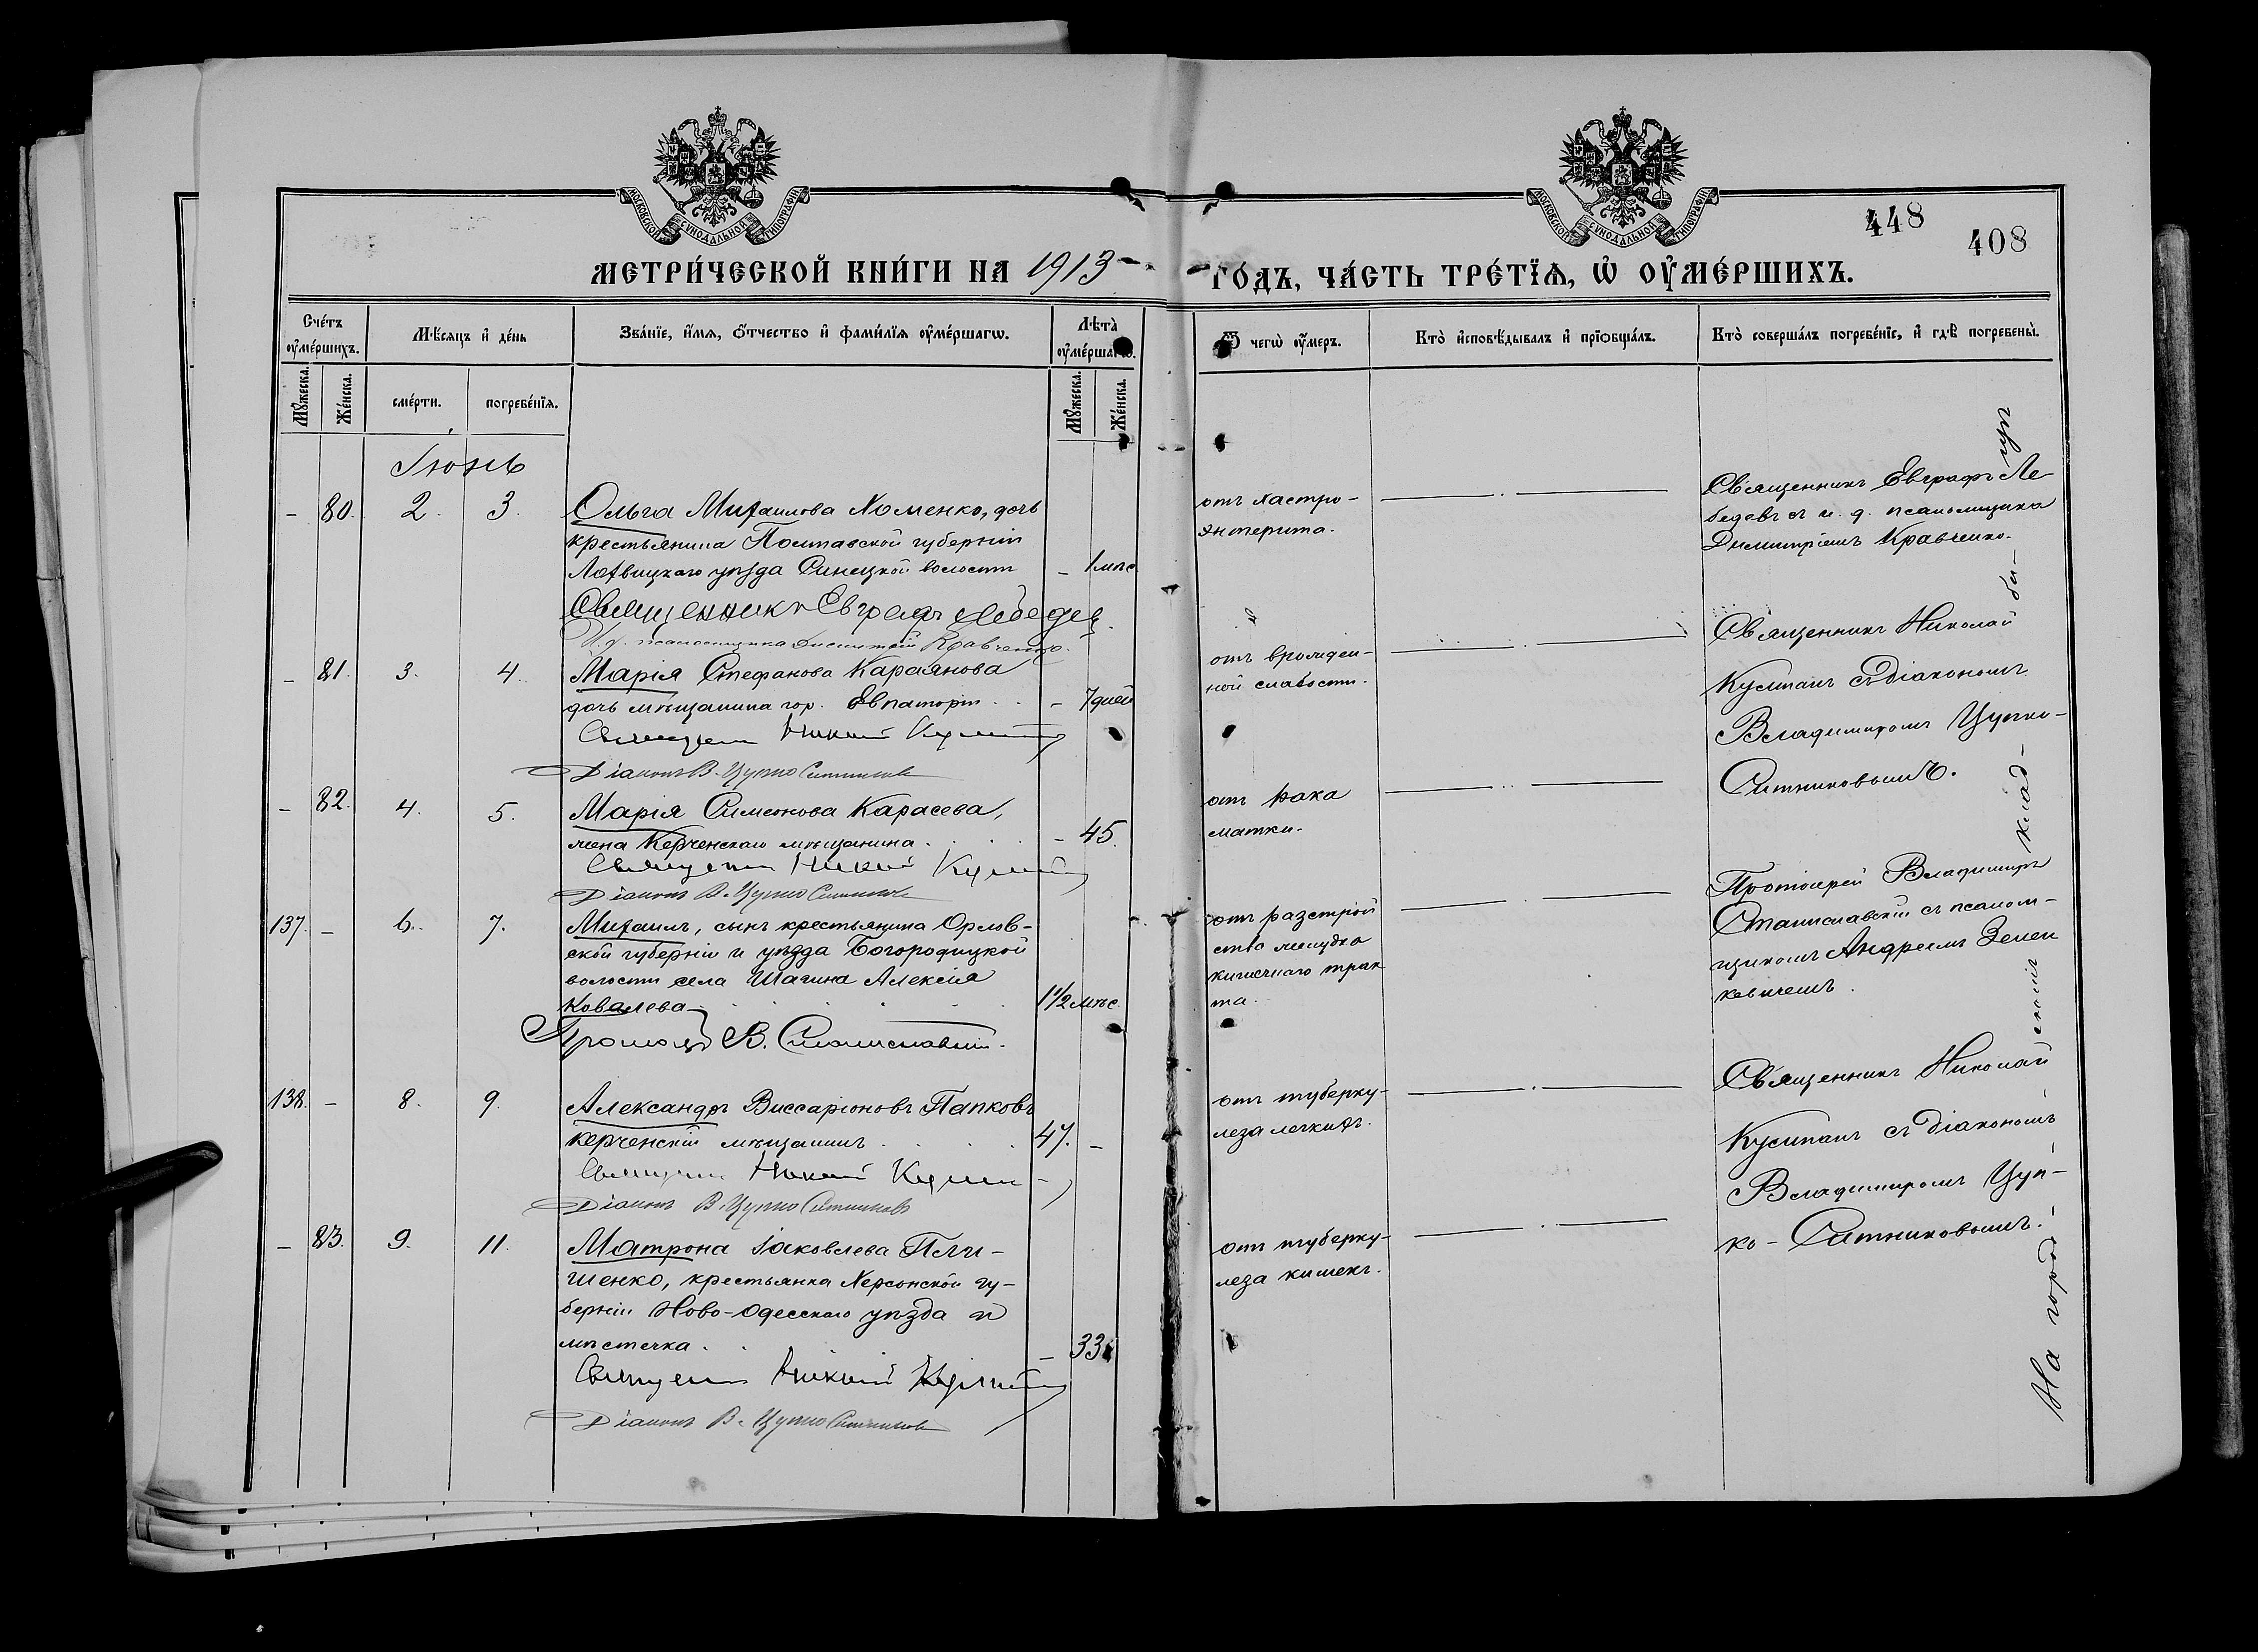 МОСКОВСКОЙ СѴНОДАЛЬНОЙ ТИПОГРАФІИ
МОСКОВСКОЙ СѴНОДАЛЬНОЙ ТИПОГРАФІИ
448
408
МЕТРИ́ЧЕСКОЙ КНИ́ГИ НА 1913 ГО́ДЪ, ЧА́СТЬ ТРЕ́ТЇѦ, Ѡ҆ ОУ҆МЕ́РШИХЪ.
Сче́тъ оу҆ме́ршихъ.
Мѣ́сяцъ и҆ де́нь
Зва́нїе, и҆́мя, ѻ҆́тчество и҆ фами́лїя оу҆ме́ршагѡ.
Лѣ́та оу҆ме́ршагѡ.
Ѿ чегѡ̀ оу҆́меръ.
Кто̀ и҆сповѣ́дывалъ и҆ прїѻбща́лъ.
Кто̀ соверша́лъ погребе́нїе, и҆ гдѣ̀ погребены̀.
Мꙋ́жеска.
Же́нска.
сме́рти.
погребе́нїя.
Мꙋ́жеска.
Же́нска.
Іюнь
– 80. 2. 3.
Ольга Михаилова Хоменко, дочь
крестьянина Полтавской губерніи
Лохвицкаго уѣзда Синецкой волости – 1 мѣс
Священникъ Евграфъ Лебедев
И. д. псаломщика Димитрій Кравченко.
отъ гастро-
энтерита.
Священникъ Евграфъ Ле-
бедевъ съ и. д. псаломщика
Димитріемъ Кравченко.
– 81. 3. 4.
Марія Стефанова Караянова
дочь мѣщанина гор. Евпаторіи . . – 7 дней
Священ Николай
Діаконъ В. Цупко Ситников
отъ врожден-
ной слабости.
Священникъ Николай
съ діакономъ
Владимиромъ Цупко-
Ситниковымъ.
– 82. 4. 5.
Марія Симеонова Карасева,
жена Керченскаго мѣщанина . . . – 45.
Священ Николай
Діаконъ В. Цупко Ситников
отъ рака
матки.
137. – 6. 7.
Михаилъ, сынъ крестьянина Орлов-
ской губерніи и уѣзда Богородицкой
волости села Шагина Алексія
Ковалева 1 1/2 мѣс.
Протоіер В. Станиславскій.
отъ разстрой
ства желудко
кишечнаго трак
та.
Протоіерей Владимиръ
Станиславскій съ псалом-
щикомъ Андреемъ Зелен
кевичемъ.
138. – 8. 9.
Александръ Виссаріоновъ Папковъ
керченскій мѣщанинъ . . . . 47. –
Священ Николай
Діаконъ В. Цупко Ситниковъ
отъ туберку-
леза легкихъ.
Священникъ Николай
съ діакономъ
Владимиромъ Цуп-
ко-Ситниковымъ.
– 83. 9. 11.
Матрона Іаковлева
крестьянка Херсонской гу-
берніи Ново-Одесскаго уѣзда и
мѣстечка . . – 33
Священ Николай
Діаконъ В. Цупко Ситников
отъ туберку-
леза кишекъ.
На город-
скомъ
клад-
би-
щѣ